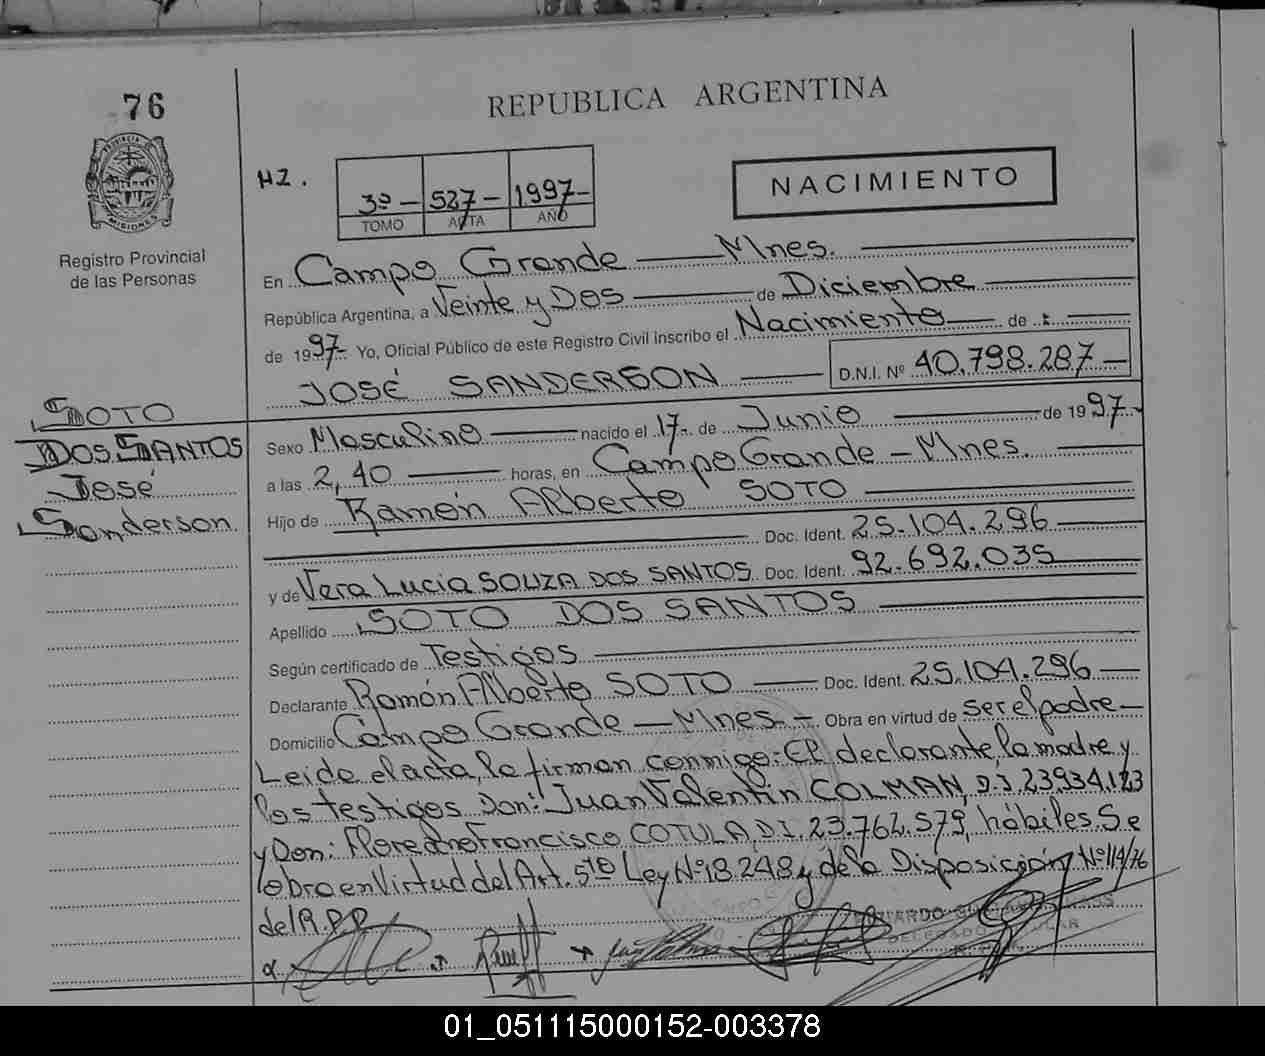 76
REPUBLICA ARGENTINA
Registro Provincial
de las Personas
HZ.
3º - 527 - 1997 -
TOMO ACTA AÑO
NACIMIENTO
En Campo Grande Mnes.
República Argentina, a Veinte y Dos de Diciembre
de 1997 Yo, Oficial Público de este Registro Civil inscribo el Nacimiento de :
JOSÉ SANDERSON D.N.I. Nº 40.798.287
SOTO
DOS SANTOS
José
Sanderson
Sexo Masculino nacido el 17 de Junio de 1997
a las 2,40 horas, en Campo Grande - Mnes.
Hijo de Ramón Alberto SOTO
Doc. Ident. 25.104.296
y de Vera Lucia SOUZA DOS SANTOS Doc. Ident. 92.692.035
Apellido SOTO DOS SANTOS
Según certificado de Testigos
Declarante Ramón Alberto SOTO Doc. Ident. 25.104.296
Domicilio Campo Grande - Mnes. - Obra en virtud de ser el padre
Leída el acta, la firman conmigo: El declarante, la madre y
los testigos Don: Juan Valentín COLMAN, D.I. 23.934.123
y Don: Floreano Francisco COTULA, D.I. 23.762.579, hábiles. Se
labra en Virtud del Art. 5to Ley Nº 18.248 y de la Disposición Nº 114/76
del R.P.P.
01_051115000152-003378